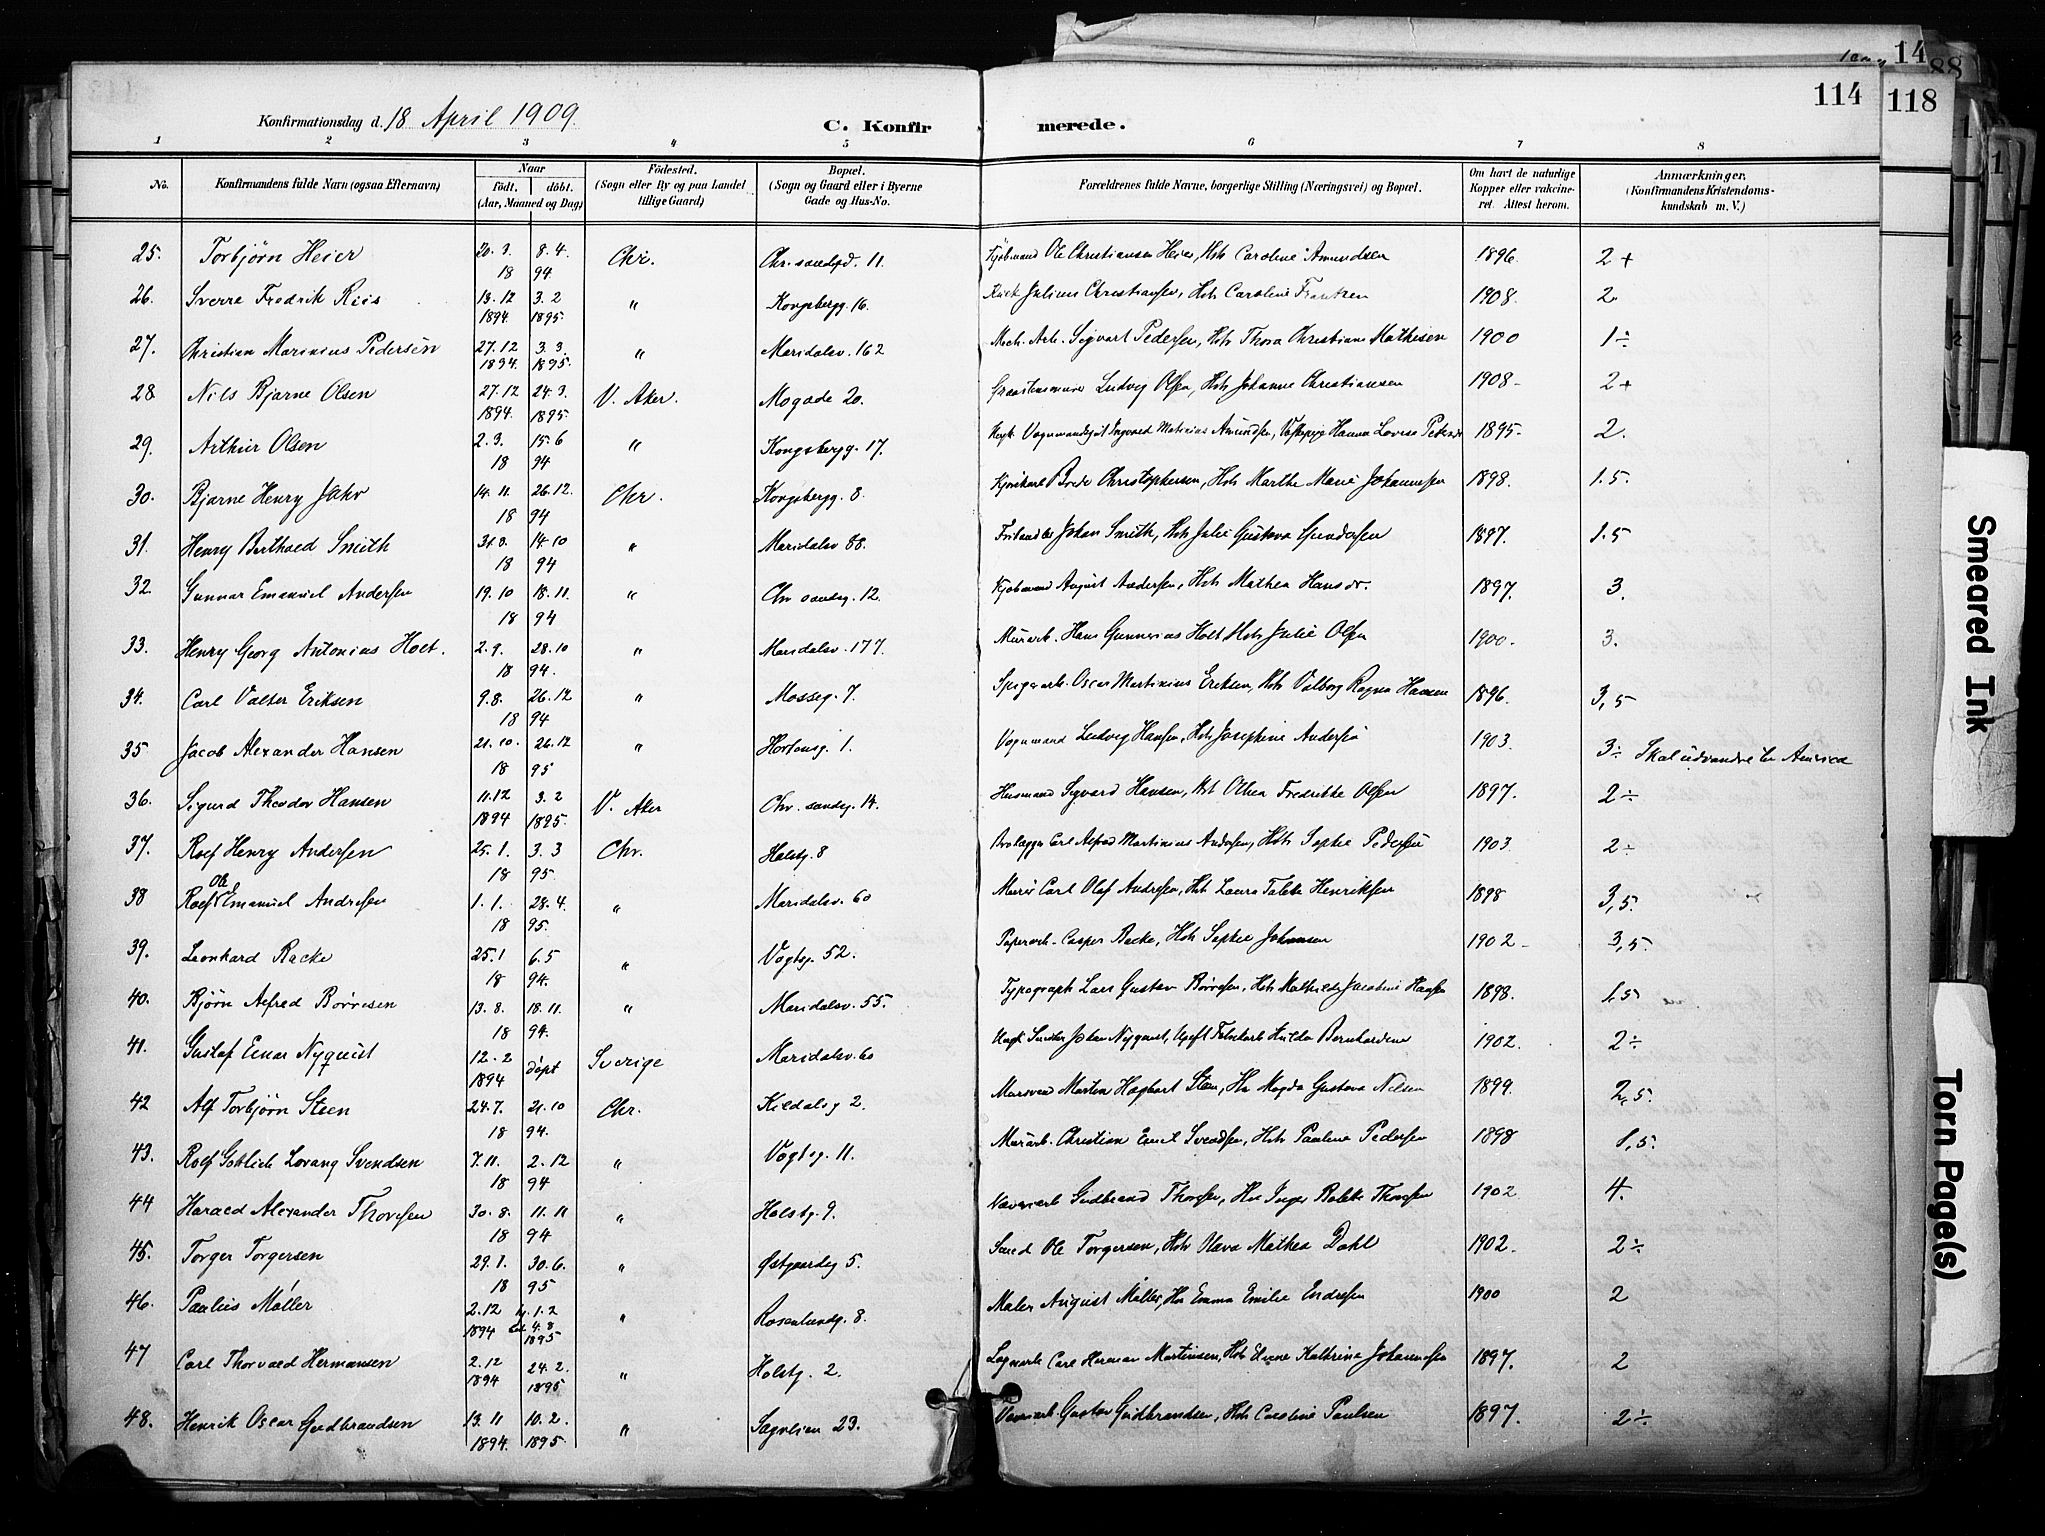 14
88
114
118
Konfirmationsdag d. 18 April 1909.
C. Konfirmerede.
1 2 3 4 5 6 7 8
No.
Konfirmandens fulde Navn (ogsaa Efternavn)
Naar
födt, döbt.
(Aar, Maaned og Dag)
Födested.
(Sogn eller By og paa Landet
tillige Gaard)
Bopæl.
(Sogn og Gaard eller i Byerne
Gade og Hus-No.
Forældrenes fulde Navne, borgerlige Stilling (Næringsvei) og Bopæl.
Om havt de naturlige
Kopper eller vakcine-
ret. Attest herom.
Anmærkninger.
(Konfirmandens Kristendoms-
kundskab m. V.)
25. Torbjørn Heier 20.3. 8.4. 18 94 Chr. Chr. sandsgd. 11. Kjøbmand Ole Christiansen Heier, Hst Caroline Amundsen 1896. 2+
26. Sverre Fredrik Riis 13.12 1894. 3.2 1895. " Kongsbergg. 16. Julius Christiansen, Hst Caroline Frantzen 1908. 2.
27. Christian Marinius Pedersen 27.12 1894. 3.3. 1895. " Maridalsv. 162 Mek. Arb. Sigvart Pedersen, Hst Thora Christiane Mathisen 1900 1÷
28. Nils Bjarne Olsen 27.12 1894. 24.3. 1895. V. Aker. Mogade 20. Ludvig Olsen, Hst Johanne Christiansen 1908- 2+
29. Arthur Olsen 2.3. 15.6 18 94 " Kongsbergg. 17. Ingvard Mathias Amundsen, Hanna Lovise Peders 1895- 2.
30. Bjarne Henry Jahr 14.11. 26.12. 18 94 Chr. Kongsbergg. 8. Brede Christophersen, Hst Marthe Marie Johannesen 1898. 1.5.
31. Henry Berthold Smith 31.8. 14.10 18 94 " Maridalsv. 88. Johan Smith, Hst Julie Gustava Gundersen 1897. 1.5
32. Gunnar Emanuel Andersen 19.10 18.11. 18 94 " Chr sandsg. 12. Kjøbmand August Andersen, Hst Mathea Hansdr. 1897. 3.
33. Henry Georg Antonius Holt. 2.9. 28.10 18 94. " Maridalsv. 177. Murarb. Hans Gunnerius Holt Hst Julie Olsen 1900. 3.
34. Carl Valter Eriksen 9.8. 26.12 18 94 " Mosseg. 7. Spigerarb. Oscar Martinius Eriksen, Hst Valborg Ragna Hansen 1896. 3,5
35 Jacob Alexander Hansen 21.10. 26.12 18 95 " Hortensg. 1. Vognmand Ludvig Hansen, Hst Josephine Andersen 1903. 3÷ Skal udvandre til America
36. Sigurd Theodor Hansen 11.12 1894 3.2 1895. V. Aker Chr. sandsg. 14. Husmand Sigvard Hansen, Hst Othea Fredrikke Olsen 1897. 2÷
37. Rolf Henry Andersen 25.1. 3.3 18 95. Chr. Holstg. 8 Brolægger Carl Alfred Martinius Andersen, Hst Sophie Pedersen 1903 2÷
38 Rolf Ole Emanuel Andresen 1.1. 28.4. 18 95. " Maridalsv. 60 Murer Carl Olaf Andresen, Hst Laura Talette Henriksen 1898 3,5.
39. Leonhard Backe 25.1 6.5 18 94. " Vogtsg. 52. Papirarb. Casper Backe, Hst Sophie Johansen 1902- 3,5.
40. Bjørn Alfred Børresen 13.8. 18.11. 18 94. " Maridalsv. 55. Typograph Lars Gustav Børresen, Hst Mathilde Jacobine Hansen 1898. 1,5
41. Gustaf Einar Nyquist 12.2 1894 døpt Sverige Maridalsv. 60 Johan Nyquist, Hulda Bernhardine 1902. 2÷
42 Alf Torbjørn Steen 24.7. 21.10 18 94. Chr. Kildalsg 2. Martin Hagbart Steen, Hst Magda Gustava Nilsen 1899. 2,5.
43. Rolf Gotlieb Lorang Svendsen 7.11. 2.12 18 94 " Vogtsg. 11. Murarb. Christian Emil Svendsen, Hst Pauline Pedersen 1898 1,5.
44 Harald Alexander Thoresen 30.8. 11.11 18 94 " Holstg. 9. Gudbrand Thoresen, Hst Inger Bolette Thoresen 1902 4.
45. Torger Torgersen 29.1. 30.6. 18 95 " Østgaardsg 5. Smed Ole Torgersen, Hst Olava Mathea Dahl 1902. 2÷
46. Paulus Møller 2.12 1894 1.2 4.8 1895 " Rosenlundg. 8. Maler August Møller, Hst Emma Emilie Endresen 1900 2
47 Carl Thorvald Hermansen 2.12 1894 24.2. 1895 " Holstg. 2. Carl Herman Martinsen, Hst Elvine Kathrine Johannesen 1897. 2
48. Henrik Oscar Gudbrandsen 13.11 1894. 10.2. 1895. " Sagveien 23. Gustav Gudbrandsen, Hst Caroline Paulsen 1897. 2÷
Smeared Ink
Torn Page(s)